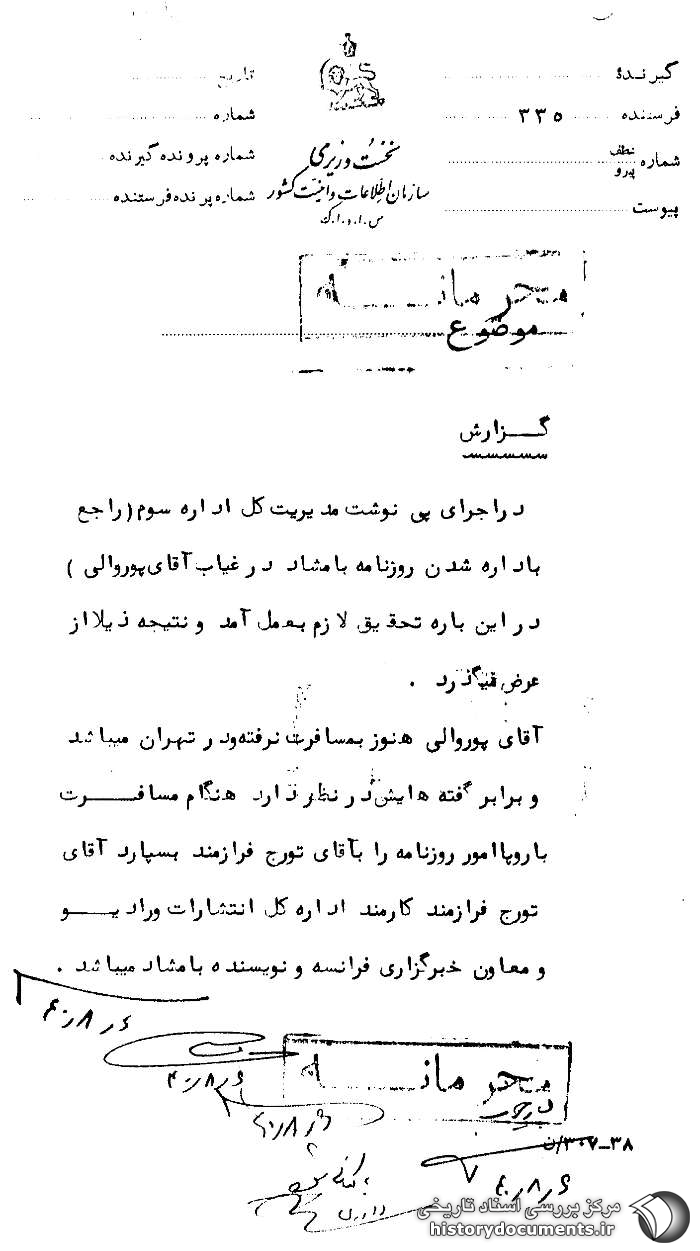 گیرنده
فرستنده ۳۳۵
شماره عطف پیرو
پیوست
نخست وزیری
سازمان اطلاعات و امنیت کشور
س.ا.و.ا.ک
تاریخ
شماره
شماره پرونده گیرنده
شماره پرونده فرستنده
محرمانه
موضوع
گزارش
در اجرای پی نوشت مدیریت کل اداره سوم (راجع
باداره شدن روزنامه بامشاد در غیاب آقای پوروالی )
در این باره تحقیق لازم بعمل آمد و نتیجه ذیلا از
عرض میگذرد .
آقای پوروالی هنوز بمسافرت نرفته ودر تهران میباشد
و برابر گفته هایش در نظر دارد هنگام مسافرت
باروپا امور روزنامه را بآقای تورج فرازمند بسپارد آقای
تورج فرازمند کارمند اداره کل انتشارات و رادیو
و معاون خبرگزاری فرانسه و نویسنده بامشاد میباشد .
۴۰/۸/۶
۴۰/۸/۶
محرمانه
۴۰/۸/۶
۴۰/۸/۶
مرکز بررسی اسناد تاریخی
historydocuments.ir